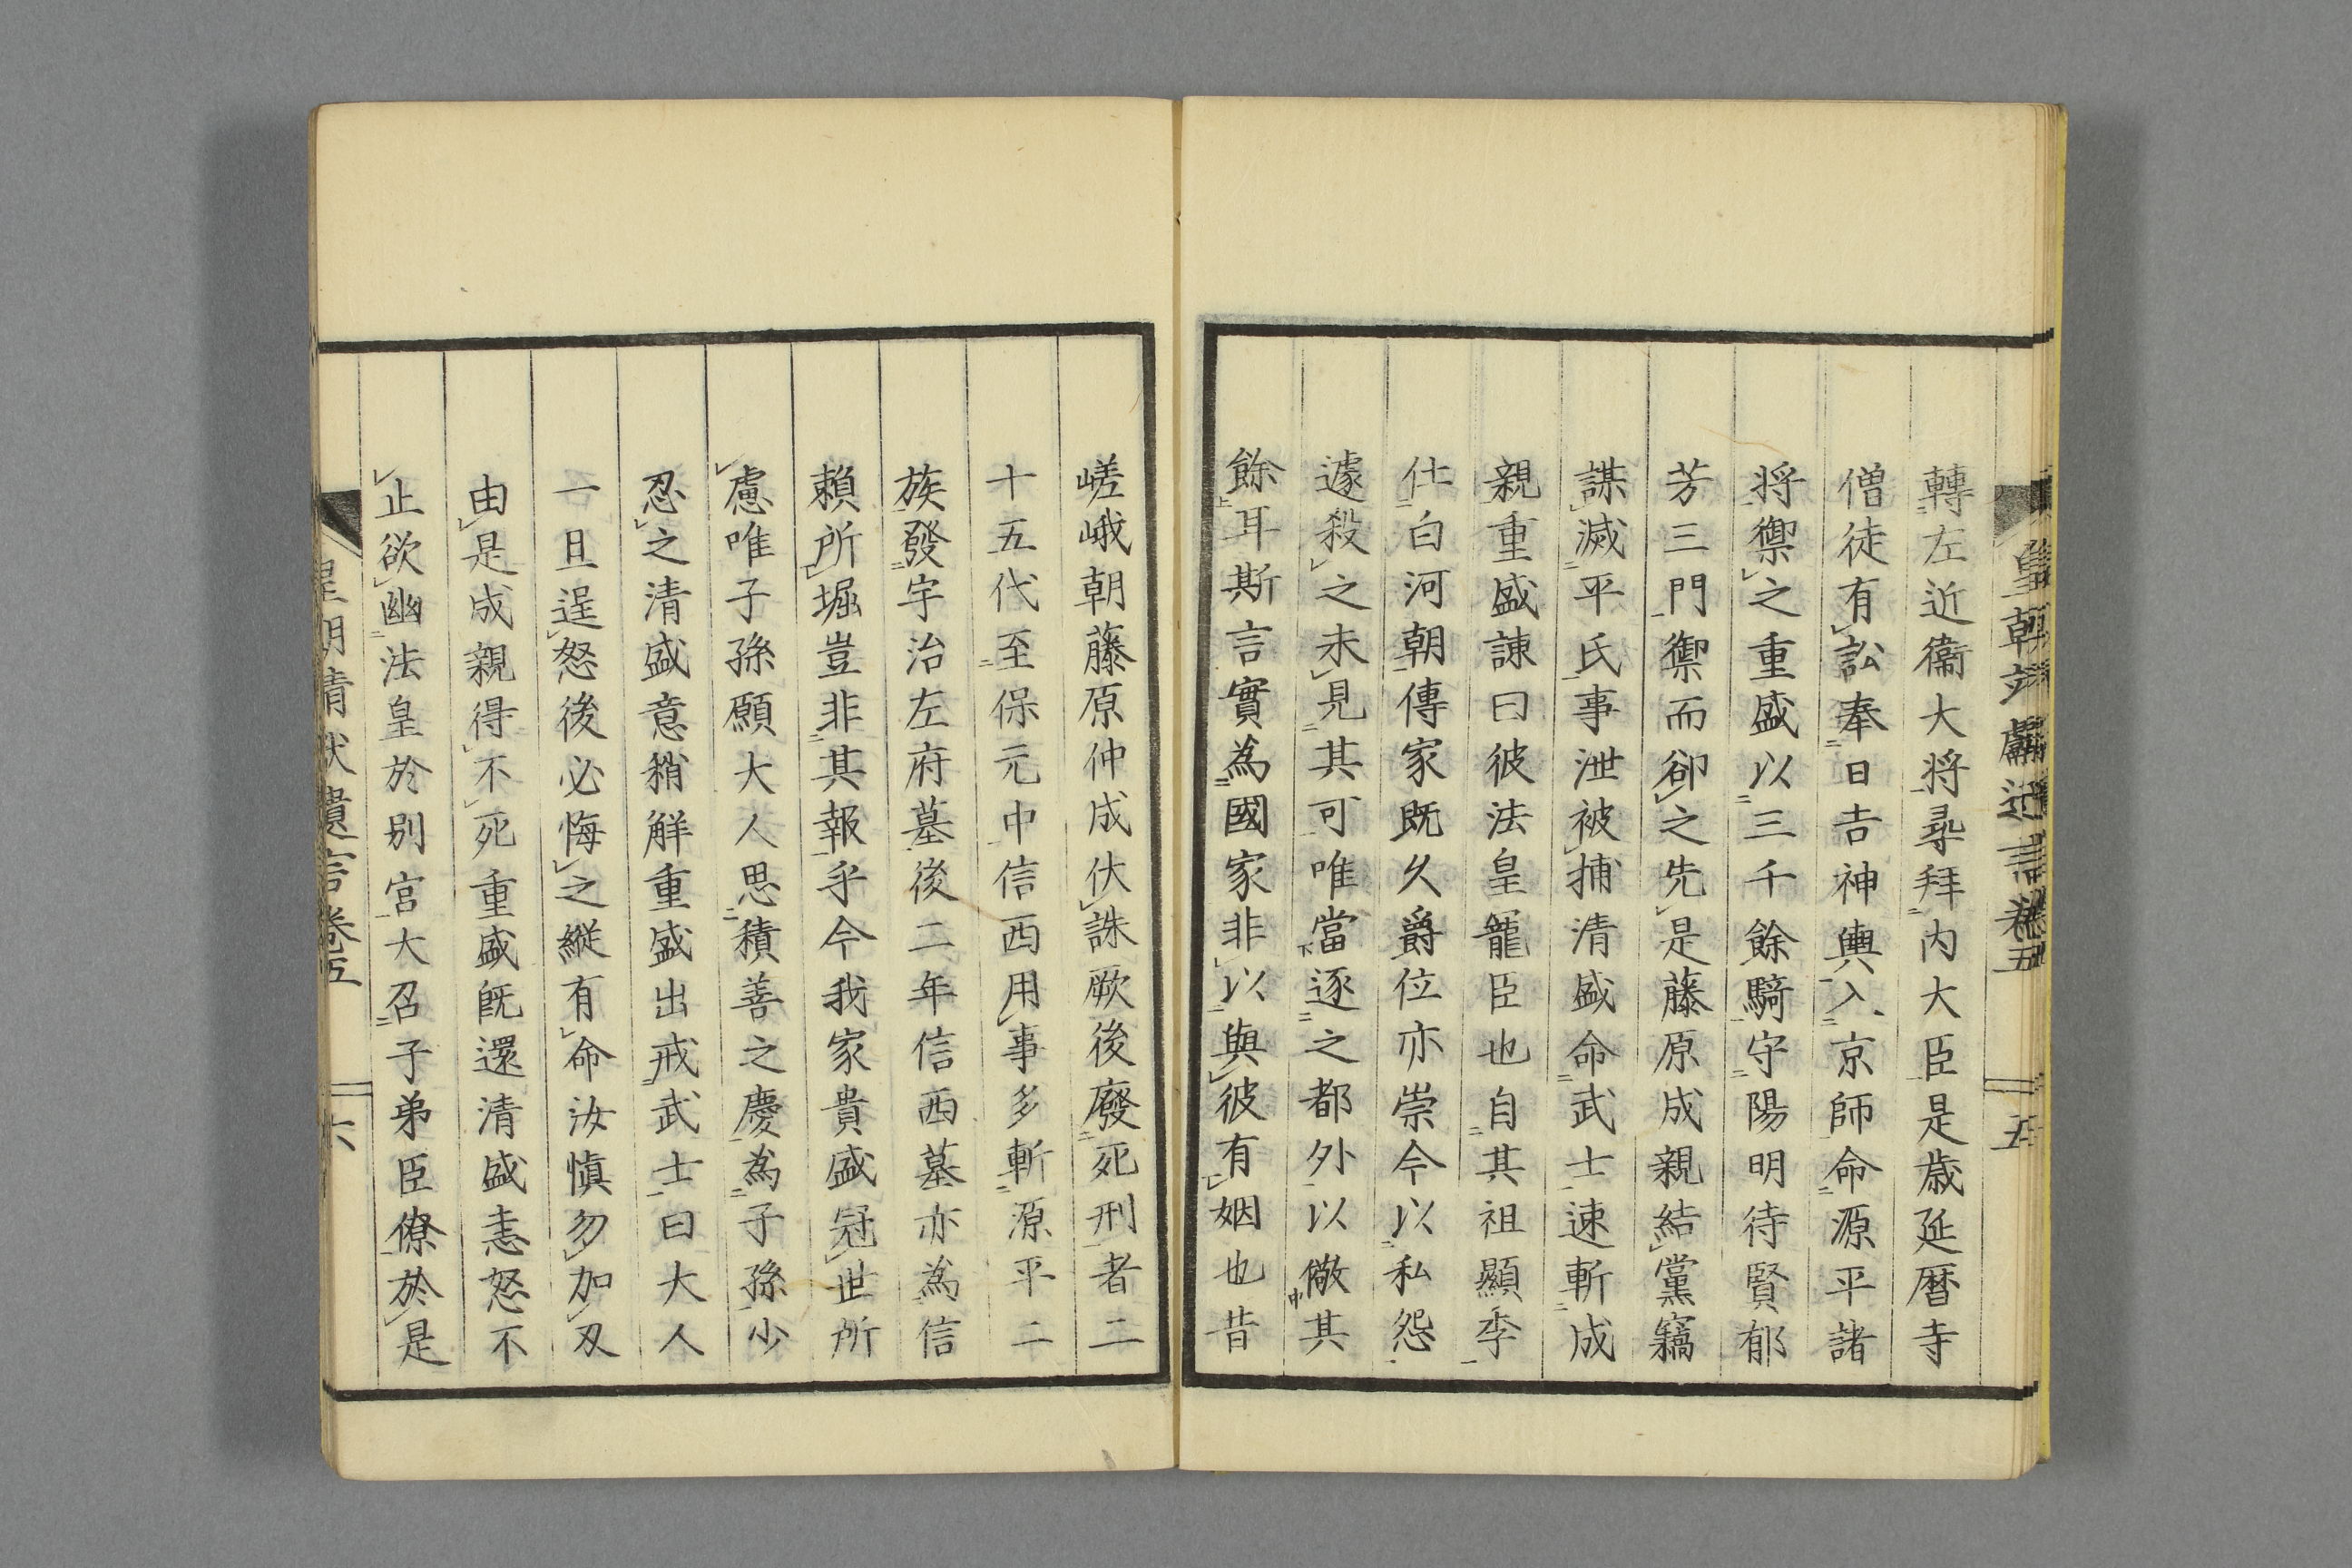 轉左近衞大将尋拜内大臣是歳延暦寺
僧徒有訟奉日吉神輿入京師命源平諸
将禦之重盛以三千餘騎守陽明待賢郁
芳三門禦而卻之先是藤原成親結黨竊
謀滅平氏事泄被捕清盛命武士速斬成
親重盛諌曰彼法皇寵臣也自其祖顯季
仕白河朝傳家既久爵位亦崇今以私怨
遽殺之未見其可唯當逐之都外以儆其
餘耳斯言實為國家非以與彼有姻也昔
嵯峨朝藤原仲成伏誅厥後廢死刑者二
十五代至保元中信西用事多斬源平二
族發宇治左府墓後二年信西墓亦為信
頼所堀豈非其報乎今我家貴盛冠世所
慮唯子孫願大人思積善之慶為子孫少
忍之清盛意稍解重盛出戒武士曰大人
一旦逞怒後必悔之縦有命汝慎勿加刃
由是成親得不死重盛既還清盛恚怒不
止欲幽法皇於别宫大召子弟臣僚於是
五
六